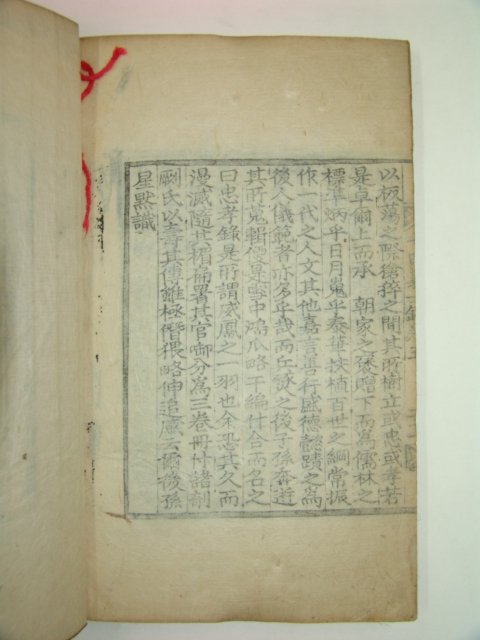 以板蕩之際倉猝之間其所樹立或忠或孝若
是卓爾上而承 朝家之褒贈下而爲儒林之
標準炳乎日月嵬乎泰華扶植百世之綱常振
作一代之人文其他嘉言善行盛德懿蹟之爲
後人儀範者亦多乎哉而丘 之後子孫奔逬
其所蒐輯僅草雪中鴻瓜略干編付合而名之
曰忠孝錄是所謂威鳳之一羽也余恐其久而
漫滅隨其楣 署其官啣分爲三卷冊付諸剞
劂氏以壽其傳雖極僭猥略伸追慕云爾後孫
星默識